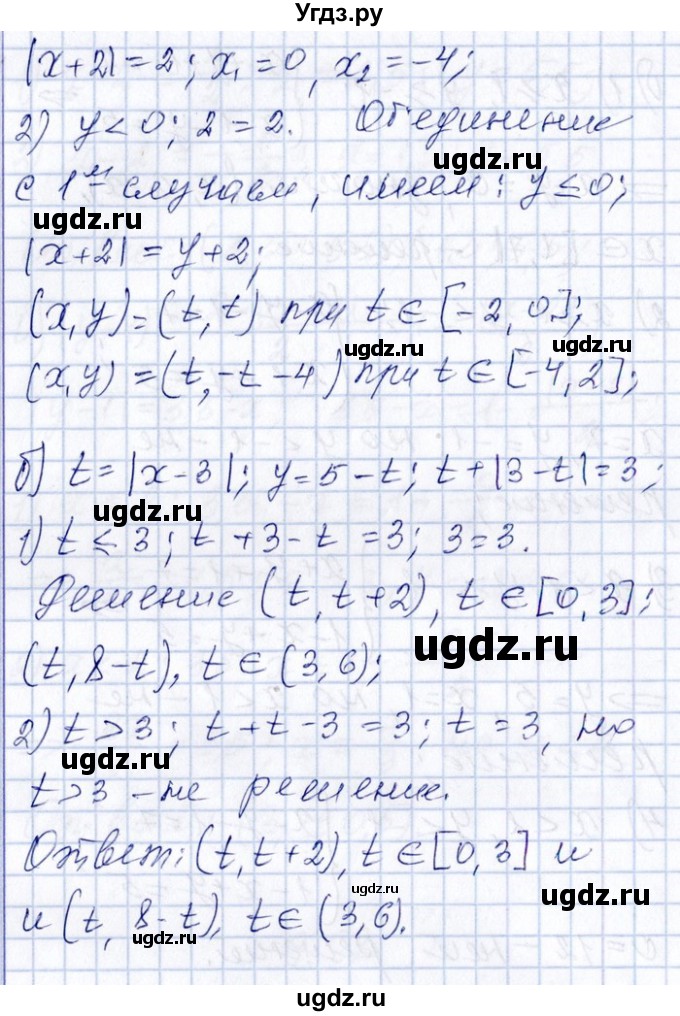 Угдз.ру
|x+2|=2; x₁=0, x₂=-4;
2) y<0; 2=2. Объединение
ugdz.ru
с 1ᵐ случаем, имеем: y≤0;
ugdz.ru
|x+2|=y+2;
ugdz.ru
(x,y)=(t,t) при t∈[-2,0];
ugdz.ru ugdz.ru
(x,y)=(t,-t-4) при t∈[-4,2];
б) t=|x-3|; y=5-t; t+|3-t|=3;
ugdz.ru
1) t≤3; t+3-t=3; 3=3.
Решение (t,t+2), t∈[0,3];
ugdz.ru
(t,8-t), t∈(3,6);
2) t>3; t+t-3=3; t=3, но
ugdz.ru
t>3 - не решение.
Ответ: (t,t+2), t∈[0,3] и
ugdz.ru ugdz.ru
и (t, 8-t), t∈(3,6).
ugdz.ru
ugdz.ru